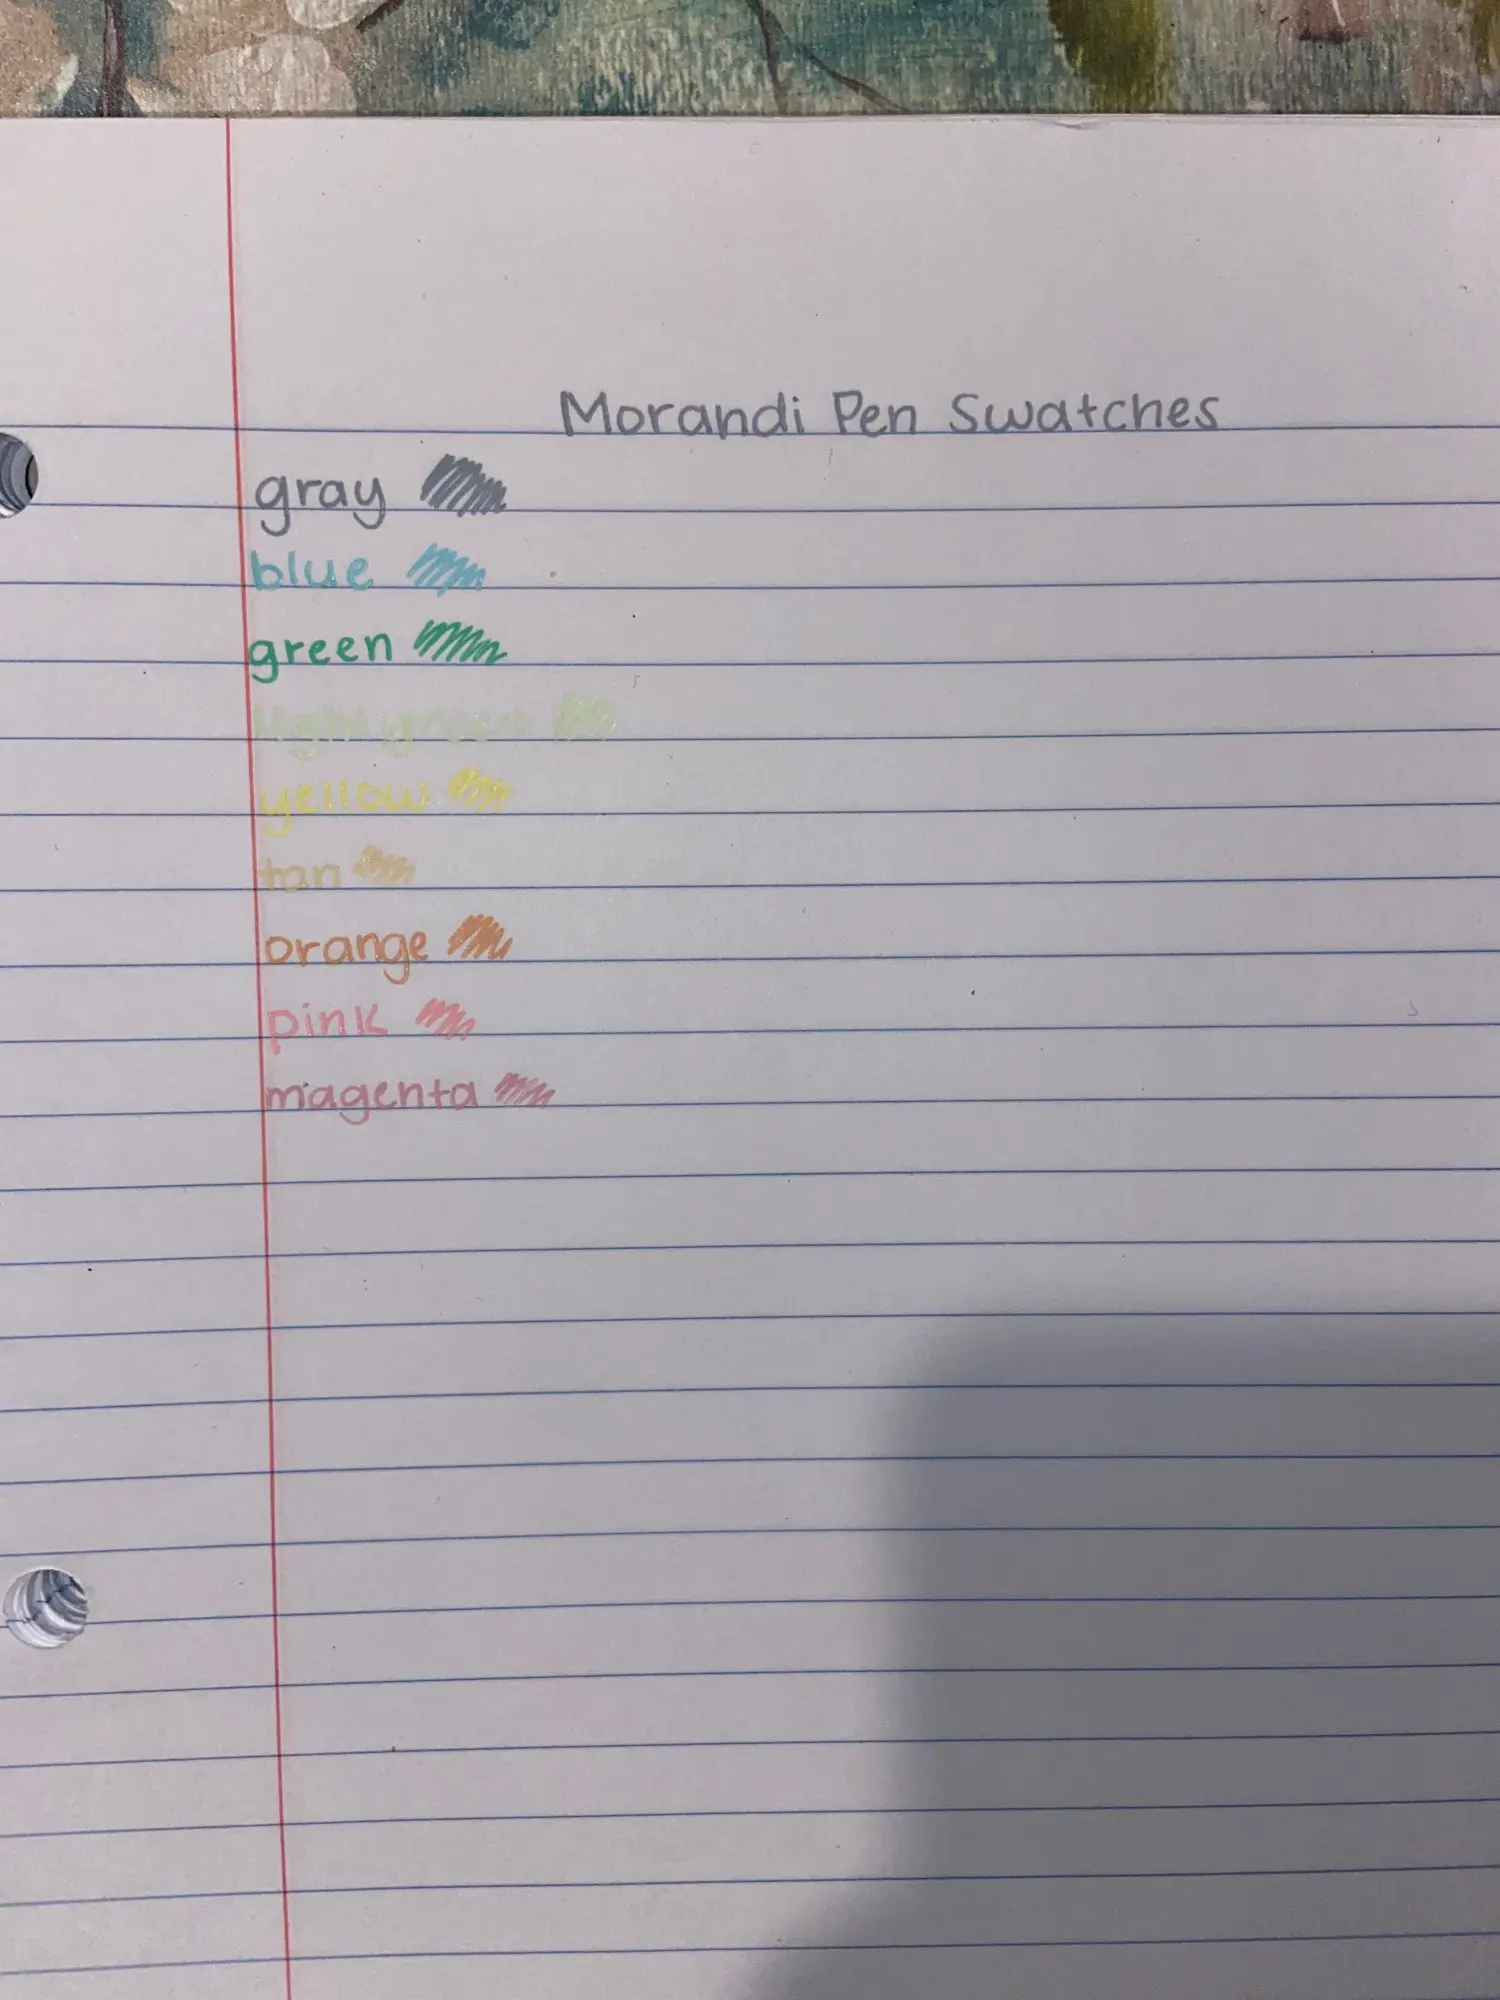 Morandi Pen Swatches
gray
blue
green
light green
yellow
tan
orange
pink
magenta